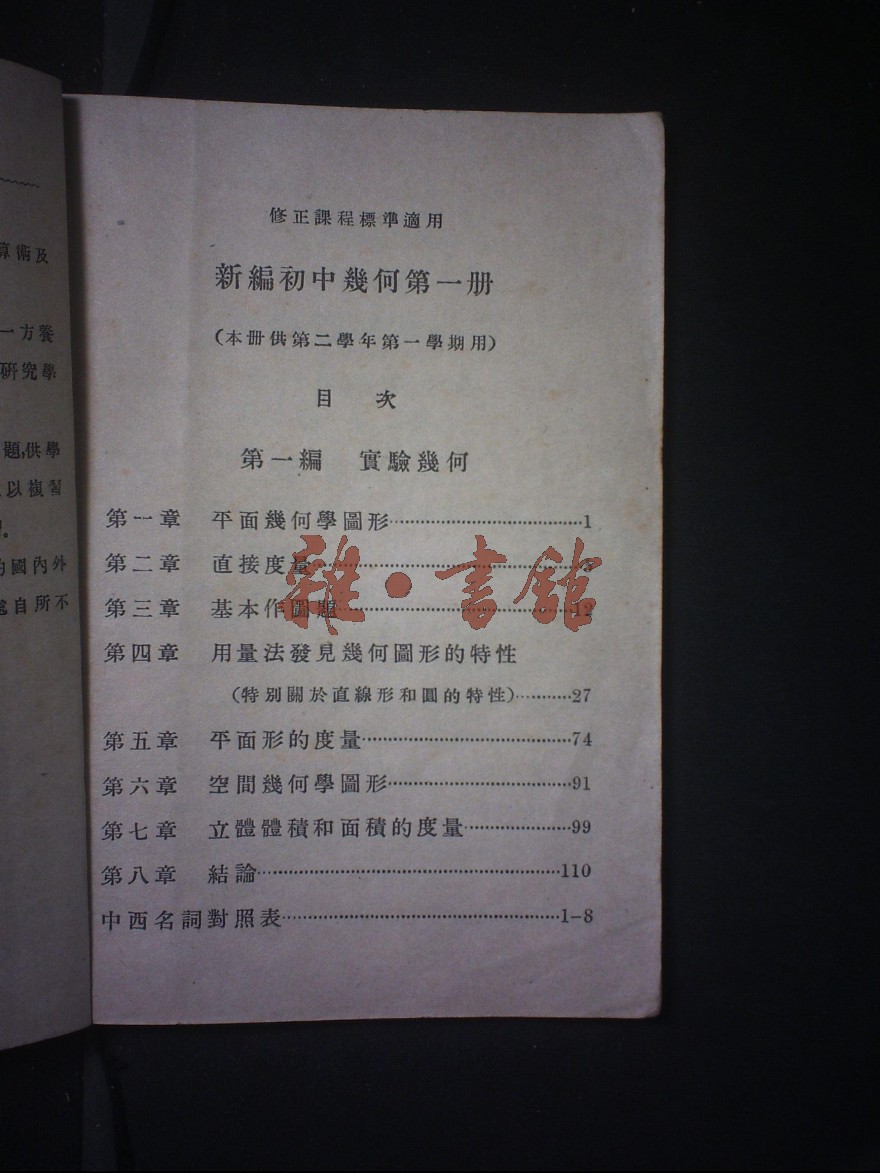 算術及
一方養
研究學
題,供學
以複習
的國內外
處自所不
修正課程標準適用
新編初中幾何第一册
(本册供第二學年第一學期用)
目 次
第一編 實驗幾何
第一章 平面幾何學圖形……………………………1
第二章 直接度量……………………………
第三章 基本作圖題……………………………12
第四章 用量法發見幾何圖形的特性
(特別關於直線形和圓的特性)…………27
第五章 平面形的度量……………………………74
第六章 空間幾何學圖形……………………………91
第七章 立體體積和面積的度量………………99
第八章 結論…………………………………………110
中西名詞對照表……………………………………1-8
雜·書館